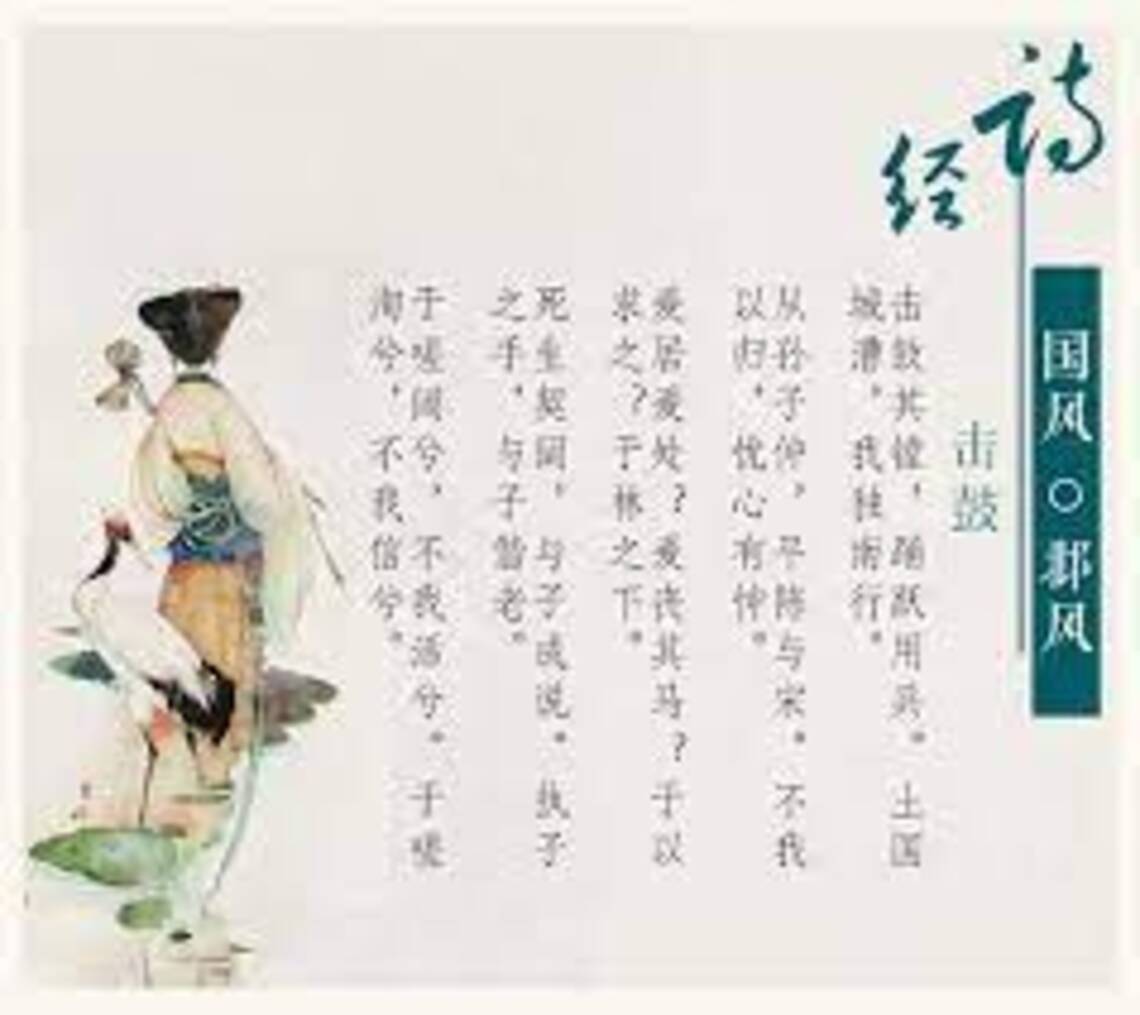 诗经
国风○邶风
击鼓
击鼓其镗，踊跃用兵。土国
城漕，我独南行。
从孙子仲，平陈与宋。不我
以归，忧心有忡。
爰居爰处？爰丧其马？于以
求之？于林之下。
死生契阔，与子成说。执子
之手，与子偕老。
于嗟阔兮，不我活兮。于嗟
洵兮，不我信兮。